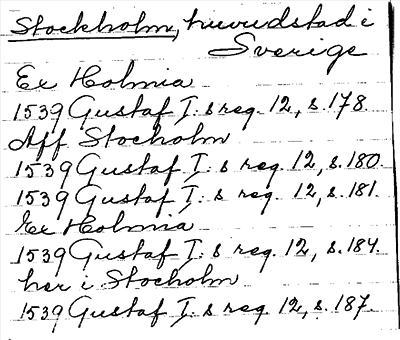 Stockholm, huvudstad i
Sverige
Ex Holmia
1539 Gustaf I:s reg. 12, s. 178.
Aff Stocholm
1539 Gustaf I:s reg. 12, s. 180.
1539 Gustaf I:s reg. 12, s. 181.
Ex Holmia
1539 Gustaf I:s reg. 12, s. 184.
her i Stocholm
1539 Gustaf I:s reg. 12, s. 187.